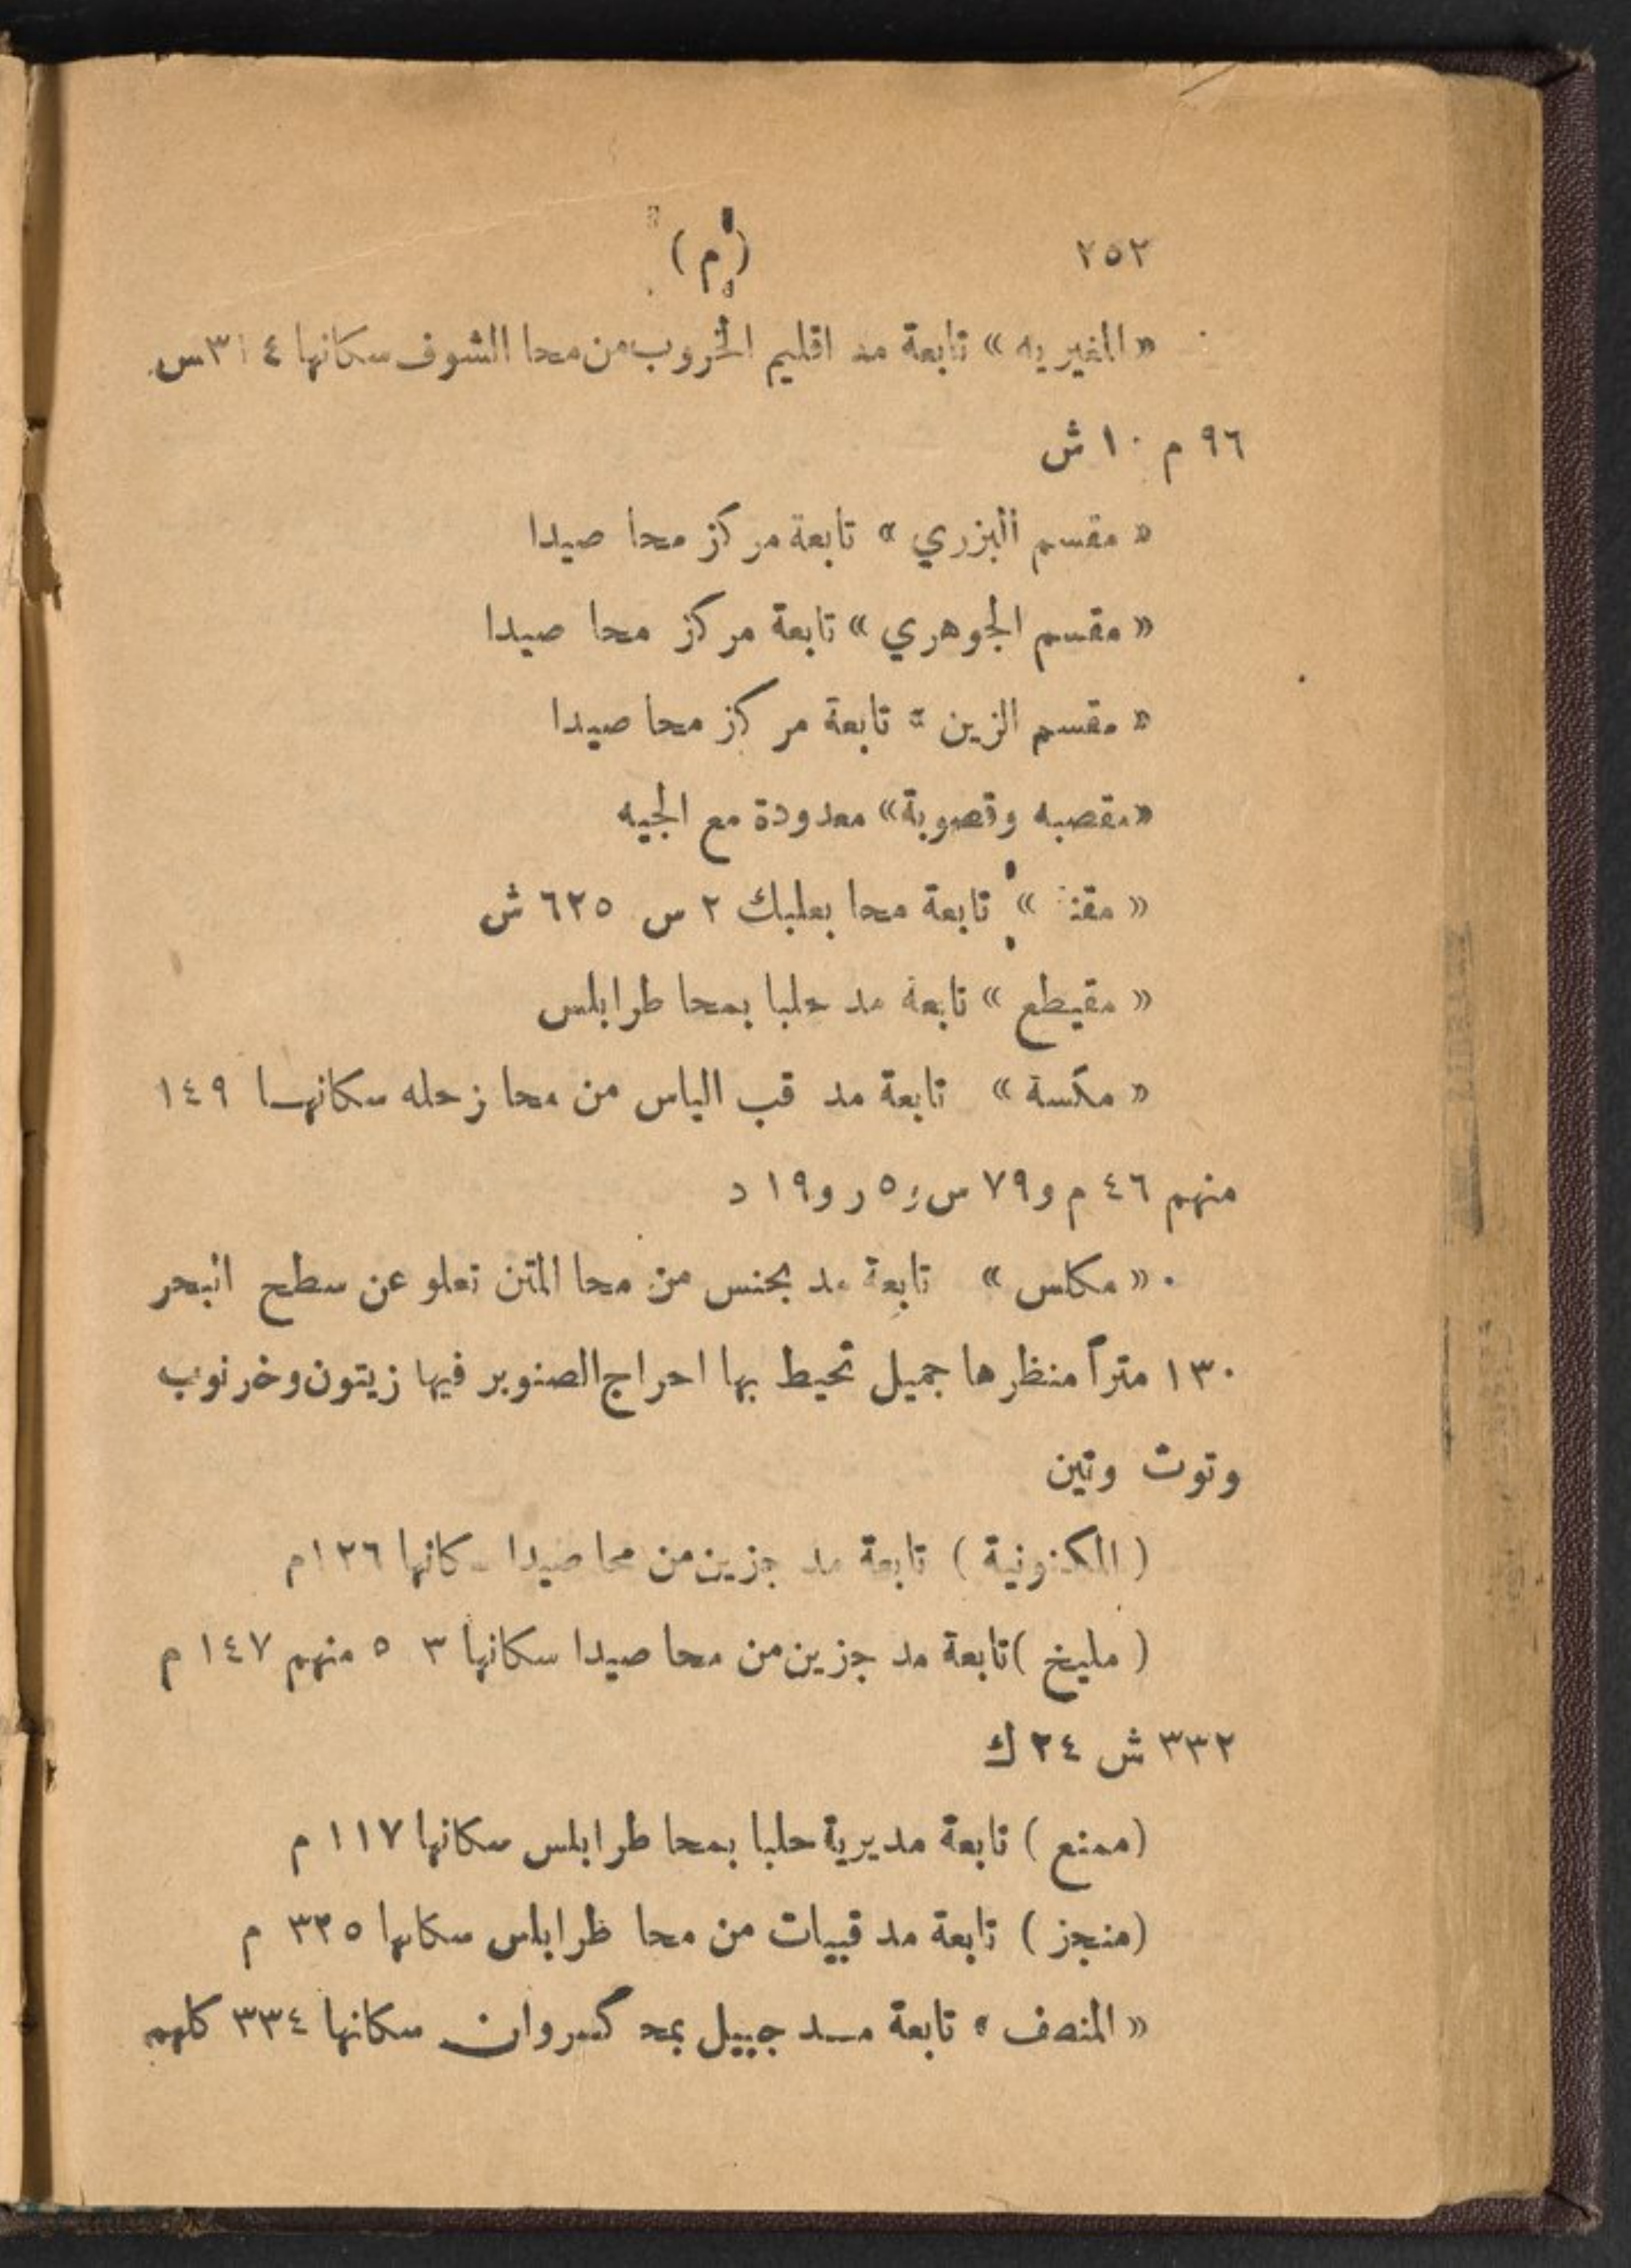 ٢٥٢ (م)
«المغيريه» تابعة مد اقليم الخروب من محا الشوف سكانها ٣١٤ س
٩٦ م ١٠ ش
« مقسم البزري » تابعة مركز محا صيدا
« مقسم الجوهري » تابعة مركز محا صيدا
« مقسم الزين » تابعة مركز محا صيدا
«مقصبه وقصوبة» معدودة مع الجيه
« مقنة » تابعة محا بعلبك ٢ س ٦٢٥ ش
« مقيطع » تابعة مد حلبا بمحا طرابلس
« مكسة » تابعة مد قب الياس من محا زحله سكانها ١٤٩
منهم ٤٦ م و٧٩ س و٥ ر و١٩ د
« مكلس » تابعة مد بحنس من محا المتن تعلو عن سطح البحر
١٣٠ متراً منظرها جميل تحيط بها احراج الصنوبر فيها زيتون وخرنوب
وتوت وتين
( المكنونية ) تابعة مد جزين من محا صيدا سكانها ١٢٦ م
( مليخ ) تابعة مد جزين من محا صيدا سكانها ٣ ٥ منهم ١٤٧ م
٣٣٢ ش ٢٤ ك
(ممنع ) تابعة مديرية حلبا بمحا طرابلس سكانها ١١٧ م
(منجز ) تابعة مد قبيات من محا طرابلس سكانها ٣٢٥ م
« المنصف » تابعة مد جبيل بمحا كسروان سكانها ٣٣٤ كلهم